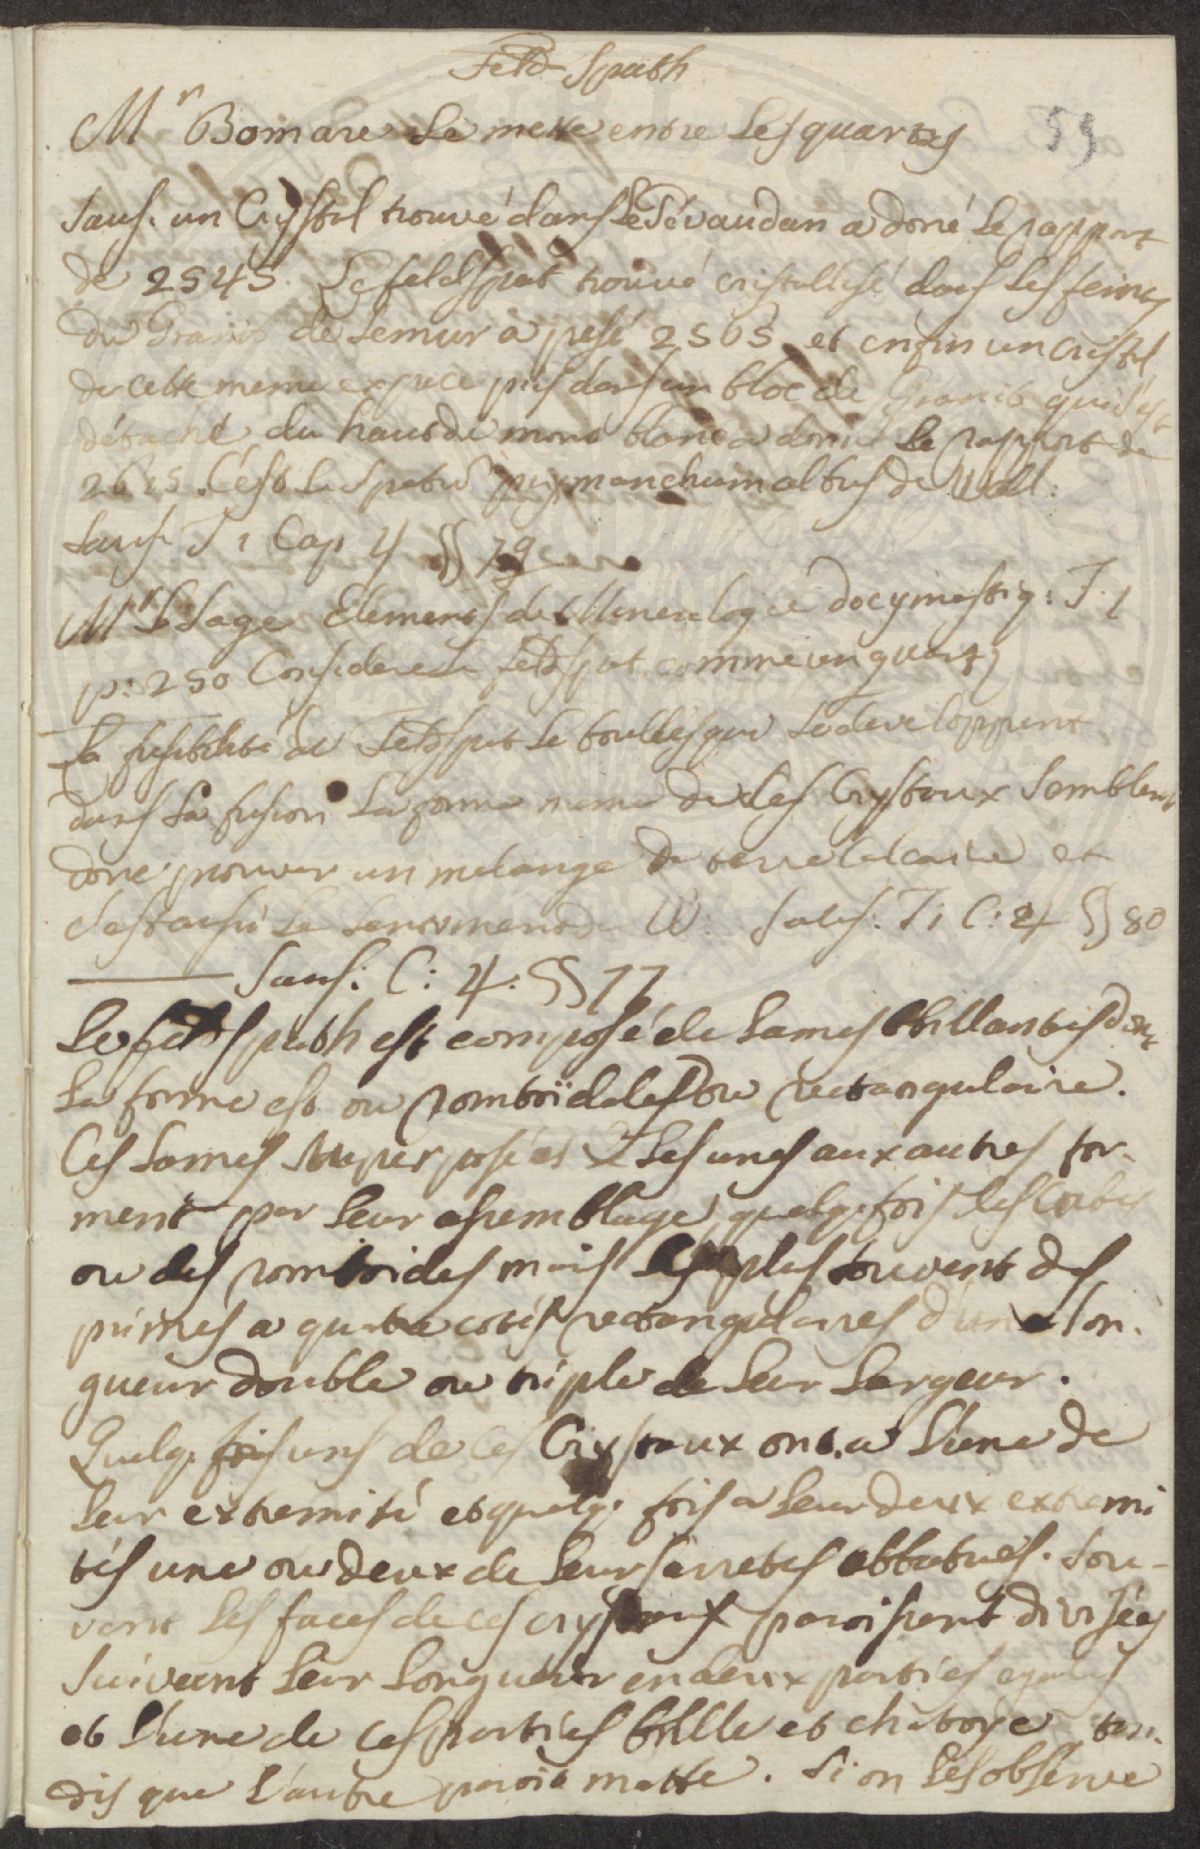 Feld Spath
59
Mr Bomare Le mette entre les quartzs
Saus. un Crystal trouvé dans le Gévaudan a doné le rapport
de 2545. Le feldspat trouvé cristallisé dans les fentes
du Granit de Semur a pesé 2505 et enfin un cristal
de cette meme espece pris dans un bloc de Granit qui s'est
détaché du haut de mont blanc a donné le rapport de
2615. C'est le Spatum pyrmanchum albus de Wall:
Saus T 1 Cap 4 §§ 79
Mr Le Sage Elements de Mineralogie docymastiq: T. 1
p: 250 Considere le feldspat comme un quartz
La fusibilité du Feldspat le boulles qui se developpent
dans la fusion la forme meme de les Crystaux semblent
donc prouver un melange de terre calcaire et
c'est aussi le sentiment de W: Saus: T 1 C: 4 §§ 80
Saus: C: 4. §§ 77
Le feldspath est composé de lames brillantes dont
la forme est ou romboïdales ou rectangulaire.
Ces lames superposées les unes aux autres for-
ment par leur assemblage, quelq. fois des cubes
ou des romboides mais les plus souvent des
primes a quatre cotés rectangulaires d'une lon-
gueur double ou triple de leur largeur.
Quelq. fois uns de ces Crystaux ont a l'une de
leur extremité et quelq. fois a leur deux extremi
tés une ou deux de leurs arretes abbatues. Sou-
vent les faces de ces crystaux paroissent divisées
suivant leur longueur en deux parties egales
et l'une de ces parties brille et chatoye tan-
dis que l'autre paroit matte. Si on les observe